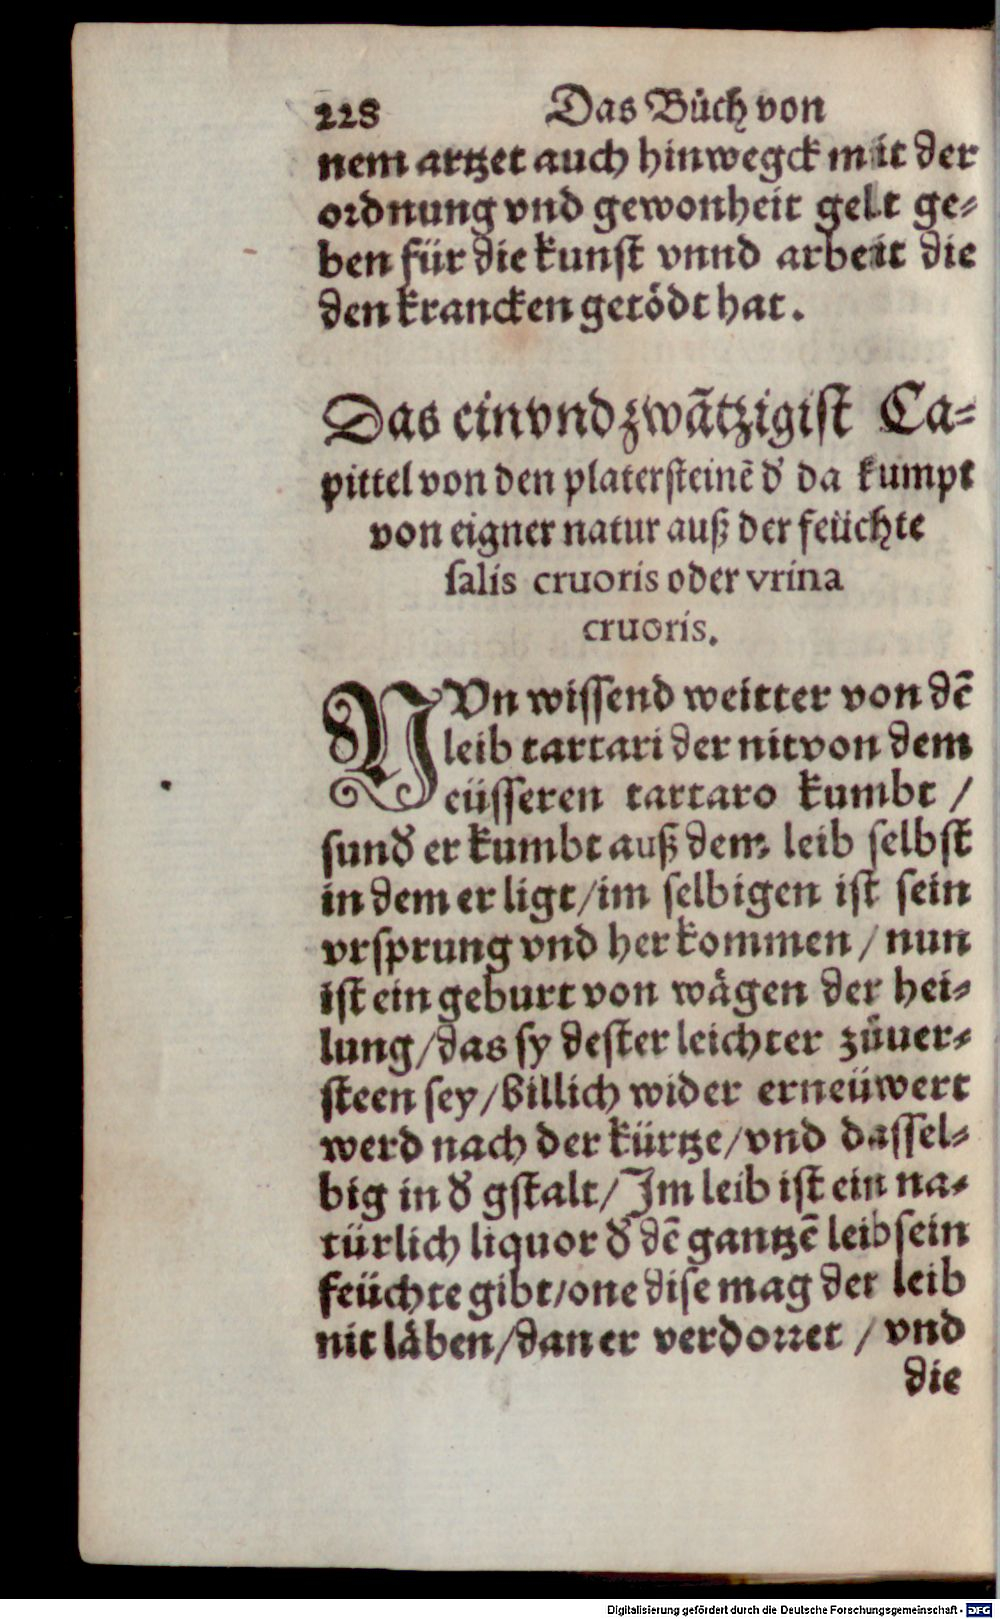 228 Das Bůch von
nem artzet auch hinwegck mit der
ordnung vnd gewonheit gelt ge-
ben für die kunst vnnd arbeit die
den krancken getödt hat.
Das einvndzwãtzigist Ca-
pittel von den platersteinẽ d' da kumpt
von eigner natur auß der feüchte
salis cruoris oder vrina
cruoris.
NVn wissend weitter von dẽ
leib tartari der nit von dem
eüsseren tartaro kumbt /
sund' er kumbt auß dem leib selbst
in dem er ligt / im selbigen ist sein
vrsprung vnd herkommen / nun
ist ein geburt von wägen der hei-
lung / das sy dester leichter zůuer-
steen sey / billich wider erneüwert
werd nach der kürtze / vnd dassel-
big in d' gstalt / Im leib ist ein na-
türlich liquor d' dẽ gantzẽ leib sein
feüchte gibt / one dise mag der leib
nit läben / dan er verdorret / vnd
die
Digitalisierung gefördert durch die Deutsche Forschungsgemeinschaft - DFG